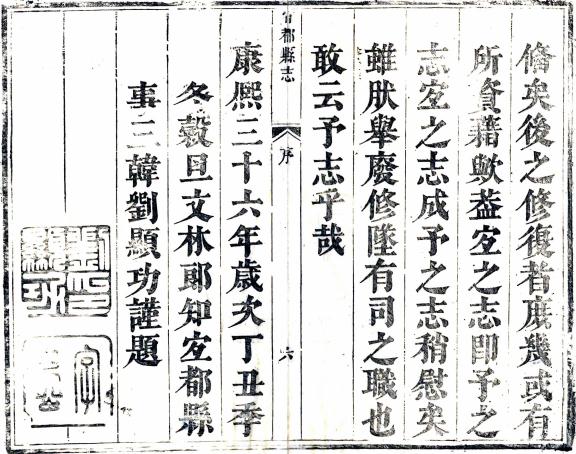 脩矣後之修復者庶幾或有
所資藉歟葢宜之志即予之
志宜之志成予之志稍慰矣
雖肰舉廢修墜有司之職也
敢云予志乎哉
都縣志
序
六
康熙三十六年歲次丁丑季
冬穀旦文林郎知宜都縣
事三韓劉顯功謹題